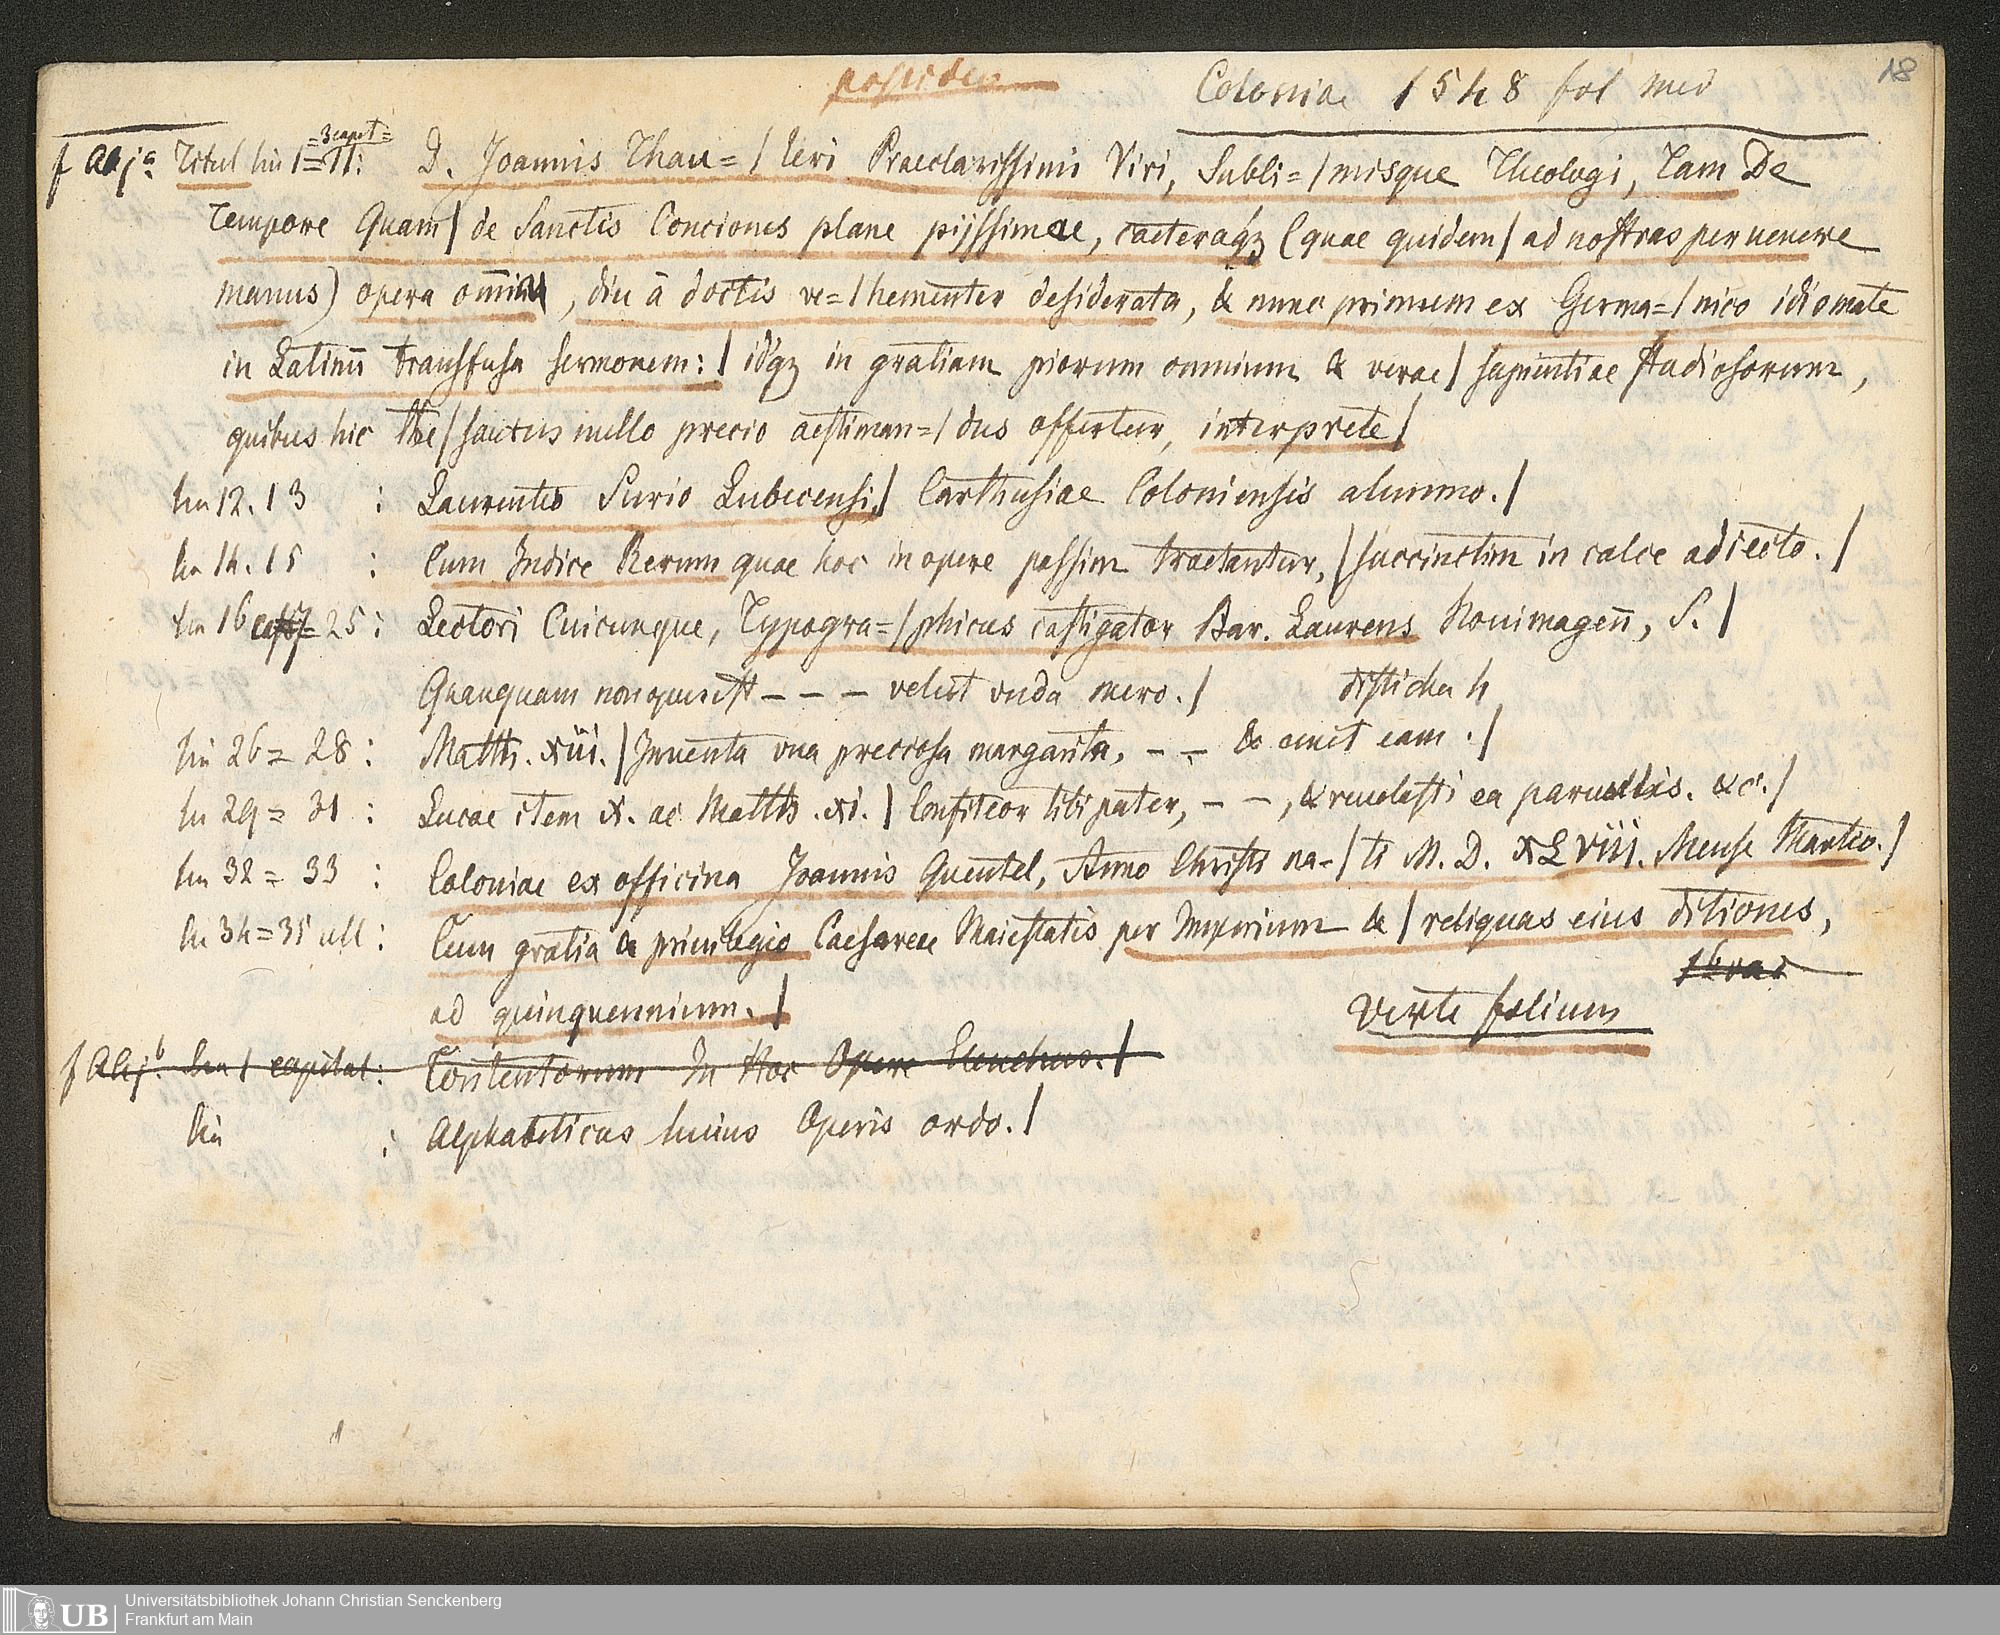 possideo
Coloniae 1548 fol med
18
=3 capit=
f Aij a Titul lin 1=11: D. Joannis Thau=/leri Praeclarissimi Viri, Subli=/misque Theologi, Tam De
Tempore Quam/ de Sanctis Conciones plane pijssimae, caeteraq́ꝫ (quae quidem/ ad nostras peruenere
manus) opera om̅ia, diu à doctis ve=/hementer desiderata, & nunc primum ex Germa=/nico idiomate
in Latinū transfusa sermonem:/ idq́ꝫ in gratiam piorum omnium & verae/ sapientiae studiosorum,
quibus hic the/saurus nullo precio aestiman=/dus offertur, interprete/
lin 12. 13 : Laurentio Surio Lubecensi,/ Carthusiae Coloniensis alumno./
lin 14. 15 : Cum Indice Rerum quae hoc in opere passim tractantur,/ succinctim in calce adiecto./
lin 16 = 25: Lectori Cuicunque, Typogra=/phicus castigator Bar. Laurens Nouimageñ, S./
Quanquam non quenist - - - velut vnda mero./ disticha 4
lin 26 = 28 : Matth. xiii./ Inuenta vna preciosa margarita, - - & emit eam./
lin 29 = 31 : Lucae item x. ac Matth. xi./ Confiteor tibi pater, - -, & reuelasti ea paruulis. &c./
lin 32 = 33 : Coloniae ex officina Joannis Quentel, Anno Christi na-/ti M. D. XLVIII. Mense Martio./
lin 34=35 ult : Cum gratia & priuilegio Caesareae Maiestatis per Imperium & / reliquas eius ditiones,
ad quinquennium./
verte folium
f Aij b. lin 1 capital: Contentorum In Hoc Opere Elenchus./
lin : Alphabeticus huius Operis ordo./
Universitätsbibliothek Johann Christian Senckenberg
Frankfurt am Main
UB